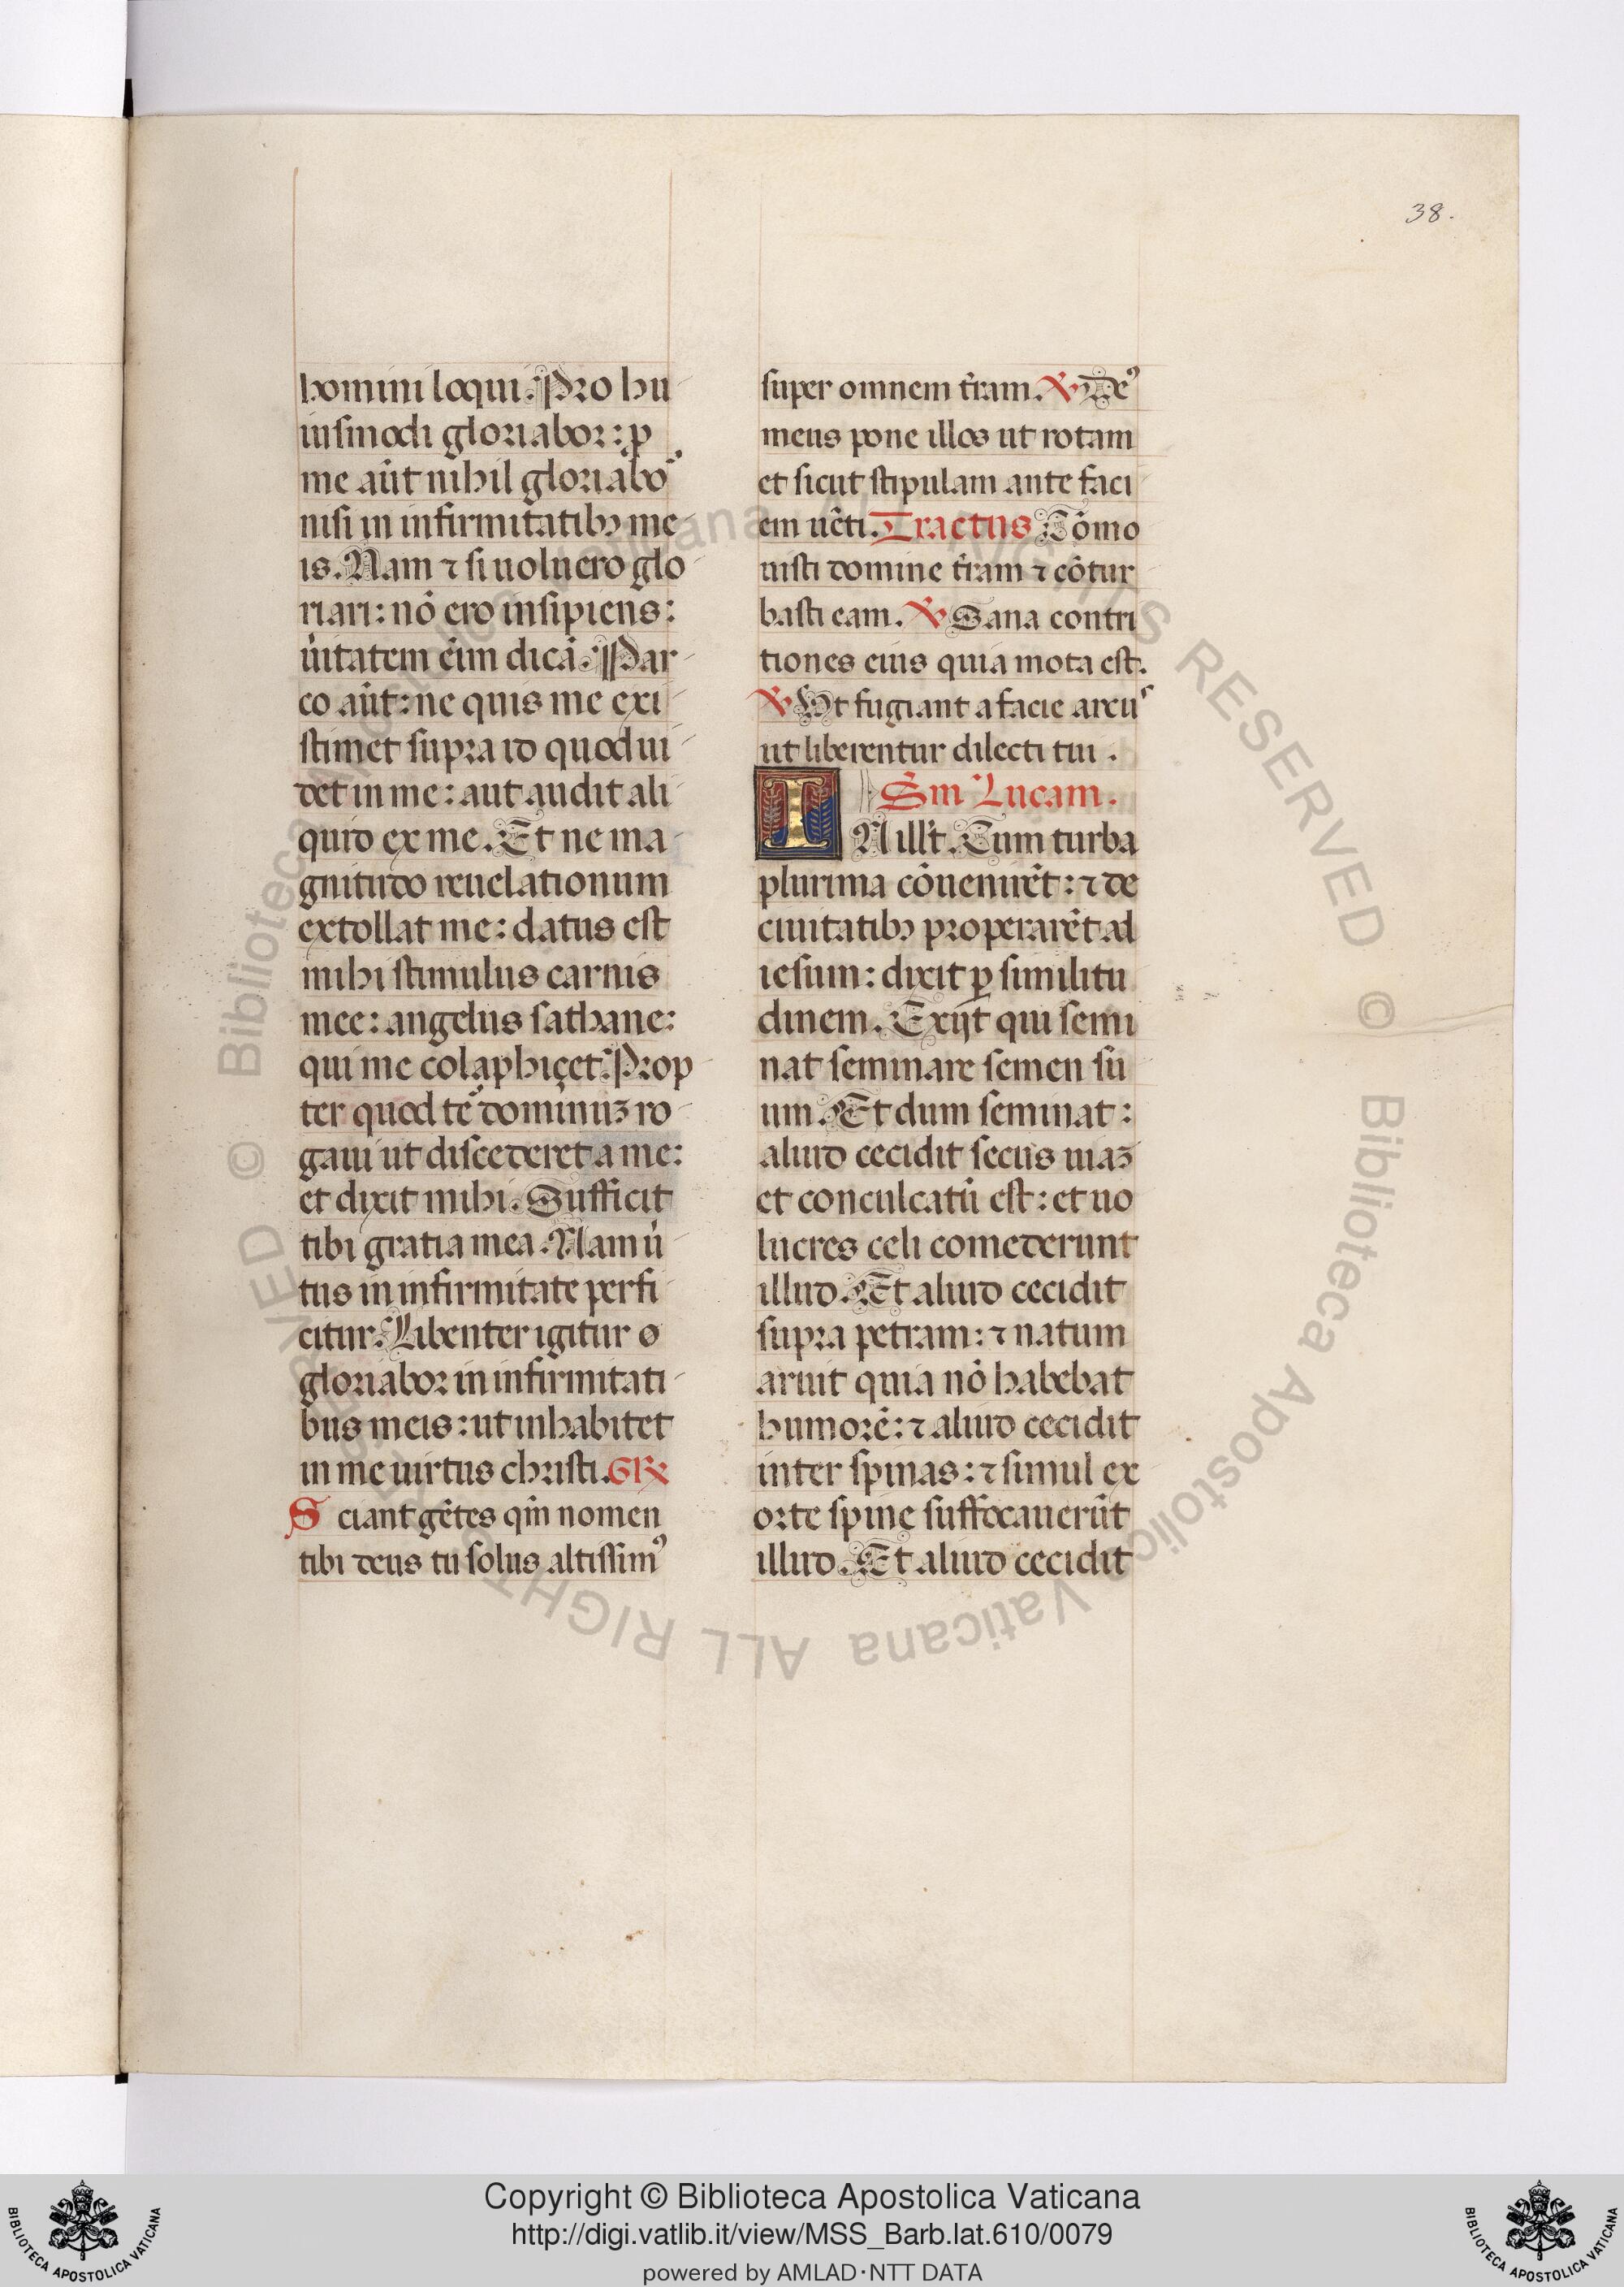 38.
homini loqui. Pro hu
iusmodi gloriabor: ꝓ
me aūt nihil gloriabor
nisi in infirmitatibꝫ me
is. Nam ⁊ si uoluero glo
riari: nō ero insipiens:
ūitatem eīm dicā. Par
co aūt: ne quis me exi
stimet supra id quod ui
det in me: aut audit ali
quid ex me. Et ne ma
gnitudo reuelationum
extollat me: datus est
mihi stimulus carnis
mee: angelus sathane:
qui me colaphiçet. Prop
ter quod te᷒ dominuꝫ ro
gaui ut discederet a me:
et dixit mihi. Sufficit
tibi gratia mea. Nam ū
tus in infirmitate perfi
citur. Libenter igitur
gloriabor in infirmitati
bus meis: ut inhabitet
in me uirtus christi. GR℣
Sciant gētes qm̄ nomen
tibi deus tu solus altissimꝰ
super omnem t̄ram. ℣ Deꝰ
meus pone illos ut rotam
et sicut stipulam ante faci
em uēti. Tractus Cōmo
uisti domine t̄ram ⁊ cōtur
basti eam. ℣ Sana contri
tiones eius quia mota est.
℣ Ut fugiant a facie arcus
ut liberentur dilecti tui.
Sm Lucam.
IN ill't. Cum turba
plurima cōuenirēt: ⁊ de
ciuitatibꝫ properarēt ad
iesum: dixit ꝑ similitu
dinem. Exijt qui semi
nat seminare semen su
um. Et dum seminat:
aliud cecidit secus uiaꝫ
et conculcatū est: et uo
lucres celi comederunt
illud. Et aliud cecidit
supra petram: ⁊ natum
aruit quia nō habebat
humorē: ⁊ aliud cecidit
inter spinas: ⁊ simul ex
orte spine suffocauerūt
illud. Et aliud cecidit
© Biblioteca Apostolica Vaticana ALL RIGHTS RESERVED © Biblioteca Apostolica Vaticana ALL RIGHTS RESERVED
BIBLIOTECA APOSTOLICA VATICANA
Copyright © Biblioteca Apostolica Vaticana
http://digi.vatlib.it/view/MSS_Barb.lat.610/0079
powered by AMLAD·NTT DATA
BIBLIOTECA APOSTOLICA VATICANA